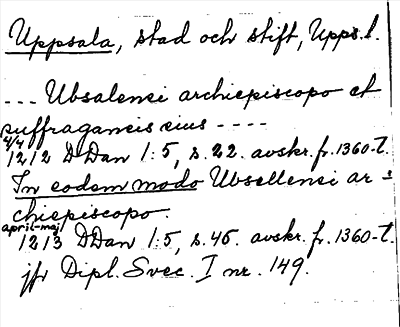 Uppsala, stad och stift, Upps.l.
--- Ubsalensi archiepiscopo et
suffraganeis eius ----
4/4
1212 DDan 1:5, s.22. avskr. fr. 1360-t.
In eodem modo Ubsellensi ar-
chiepiscopo.
april-maj
1213 DDan 1:5, s.45. avskr. fr. 1360-t.
jfr Dipl. Svec. I nr. 149.